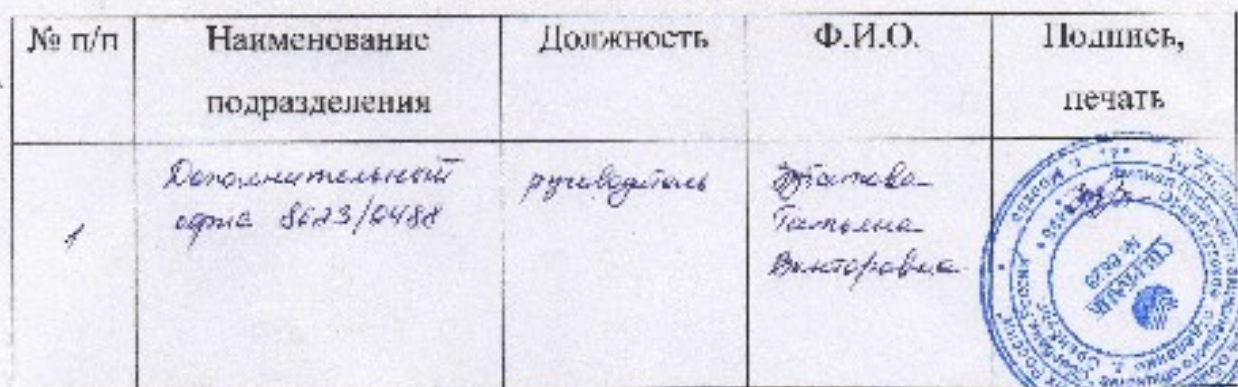 № п/п
Наименование
подразделения
Должность
Ф.И.О.
Подпись,
печать
1
Дополнительный
офис 8623/0488
руководитель
Татьяна
Викторовна
№ 8623